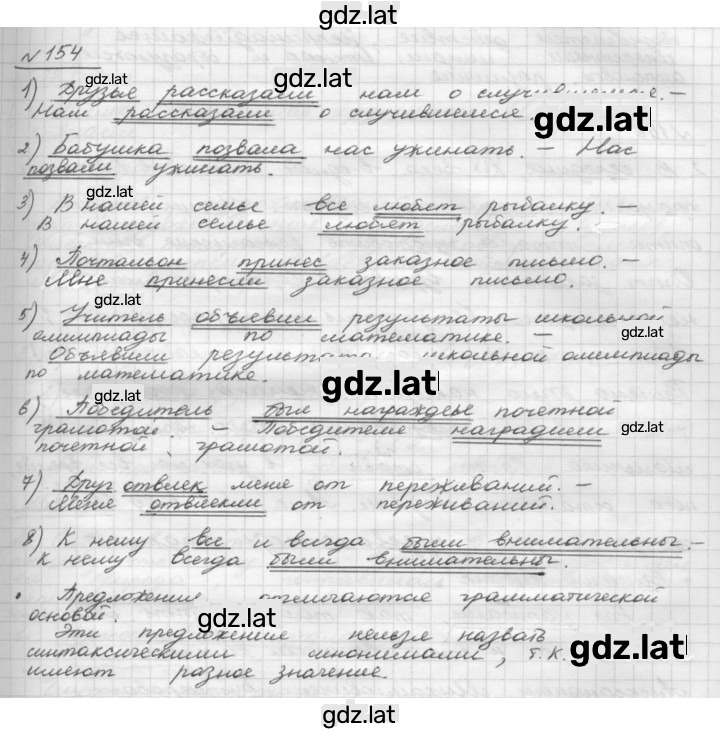 gdz.lat
№154
gdz.lat
1) Друзья рассказали нам о случившемся. –
Нам рассказали о случившемся.
gdz.lat
gdz.lat
2) Бабушка позвала нас ужинать. – Нас
позвали ужинать.
gdz.lat
3) В нашей семье все любят рыбалку. –
В нашей семье любят рыбалку.
4) Почтальон принес заказное письмо. –
gdz.lat
Мне принесли заказное письмо.
5) Учитель объявил результаты школьной
gdz.lat
олимпиады по математике. –
Объявили результаты школьной олимпиады
по математике.
gdz.lat
gdz.lat
6) Победитель был награжден почетной
грамотой. – Победителя наградили
gdz.lat
почетной грамотой.
7) Друг отвлек меня от переживаний. –
Меня отвлекли от переживаний.
8) К нему все и всегда были внимательны. –
К нему всегда были внимательны.
Предложения отличаются грамматической
основой.
gdz.lat
Эти предложения нельзя назвать
синтаксическими синонимами, т.к.
gdz.lat
имеют разное значение.
gdz.lat